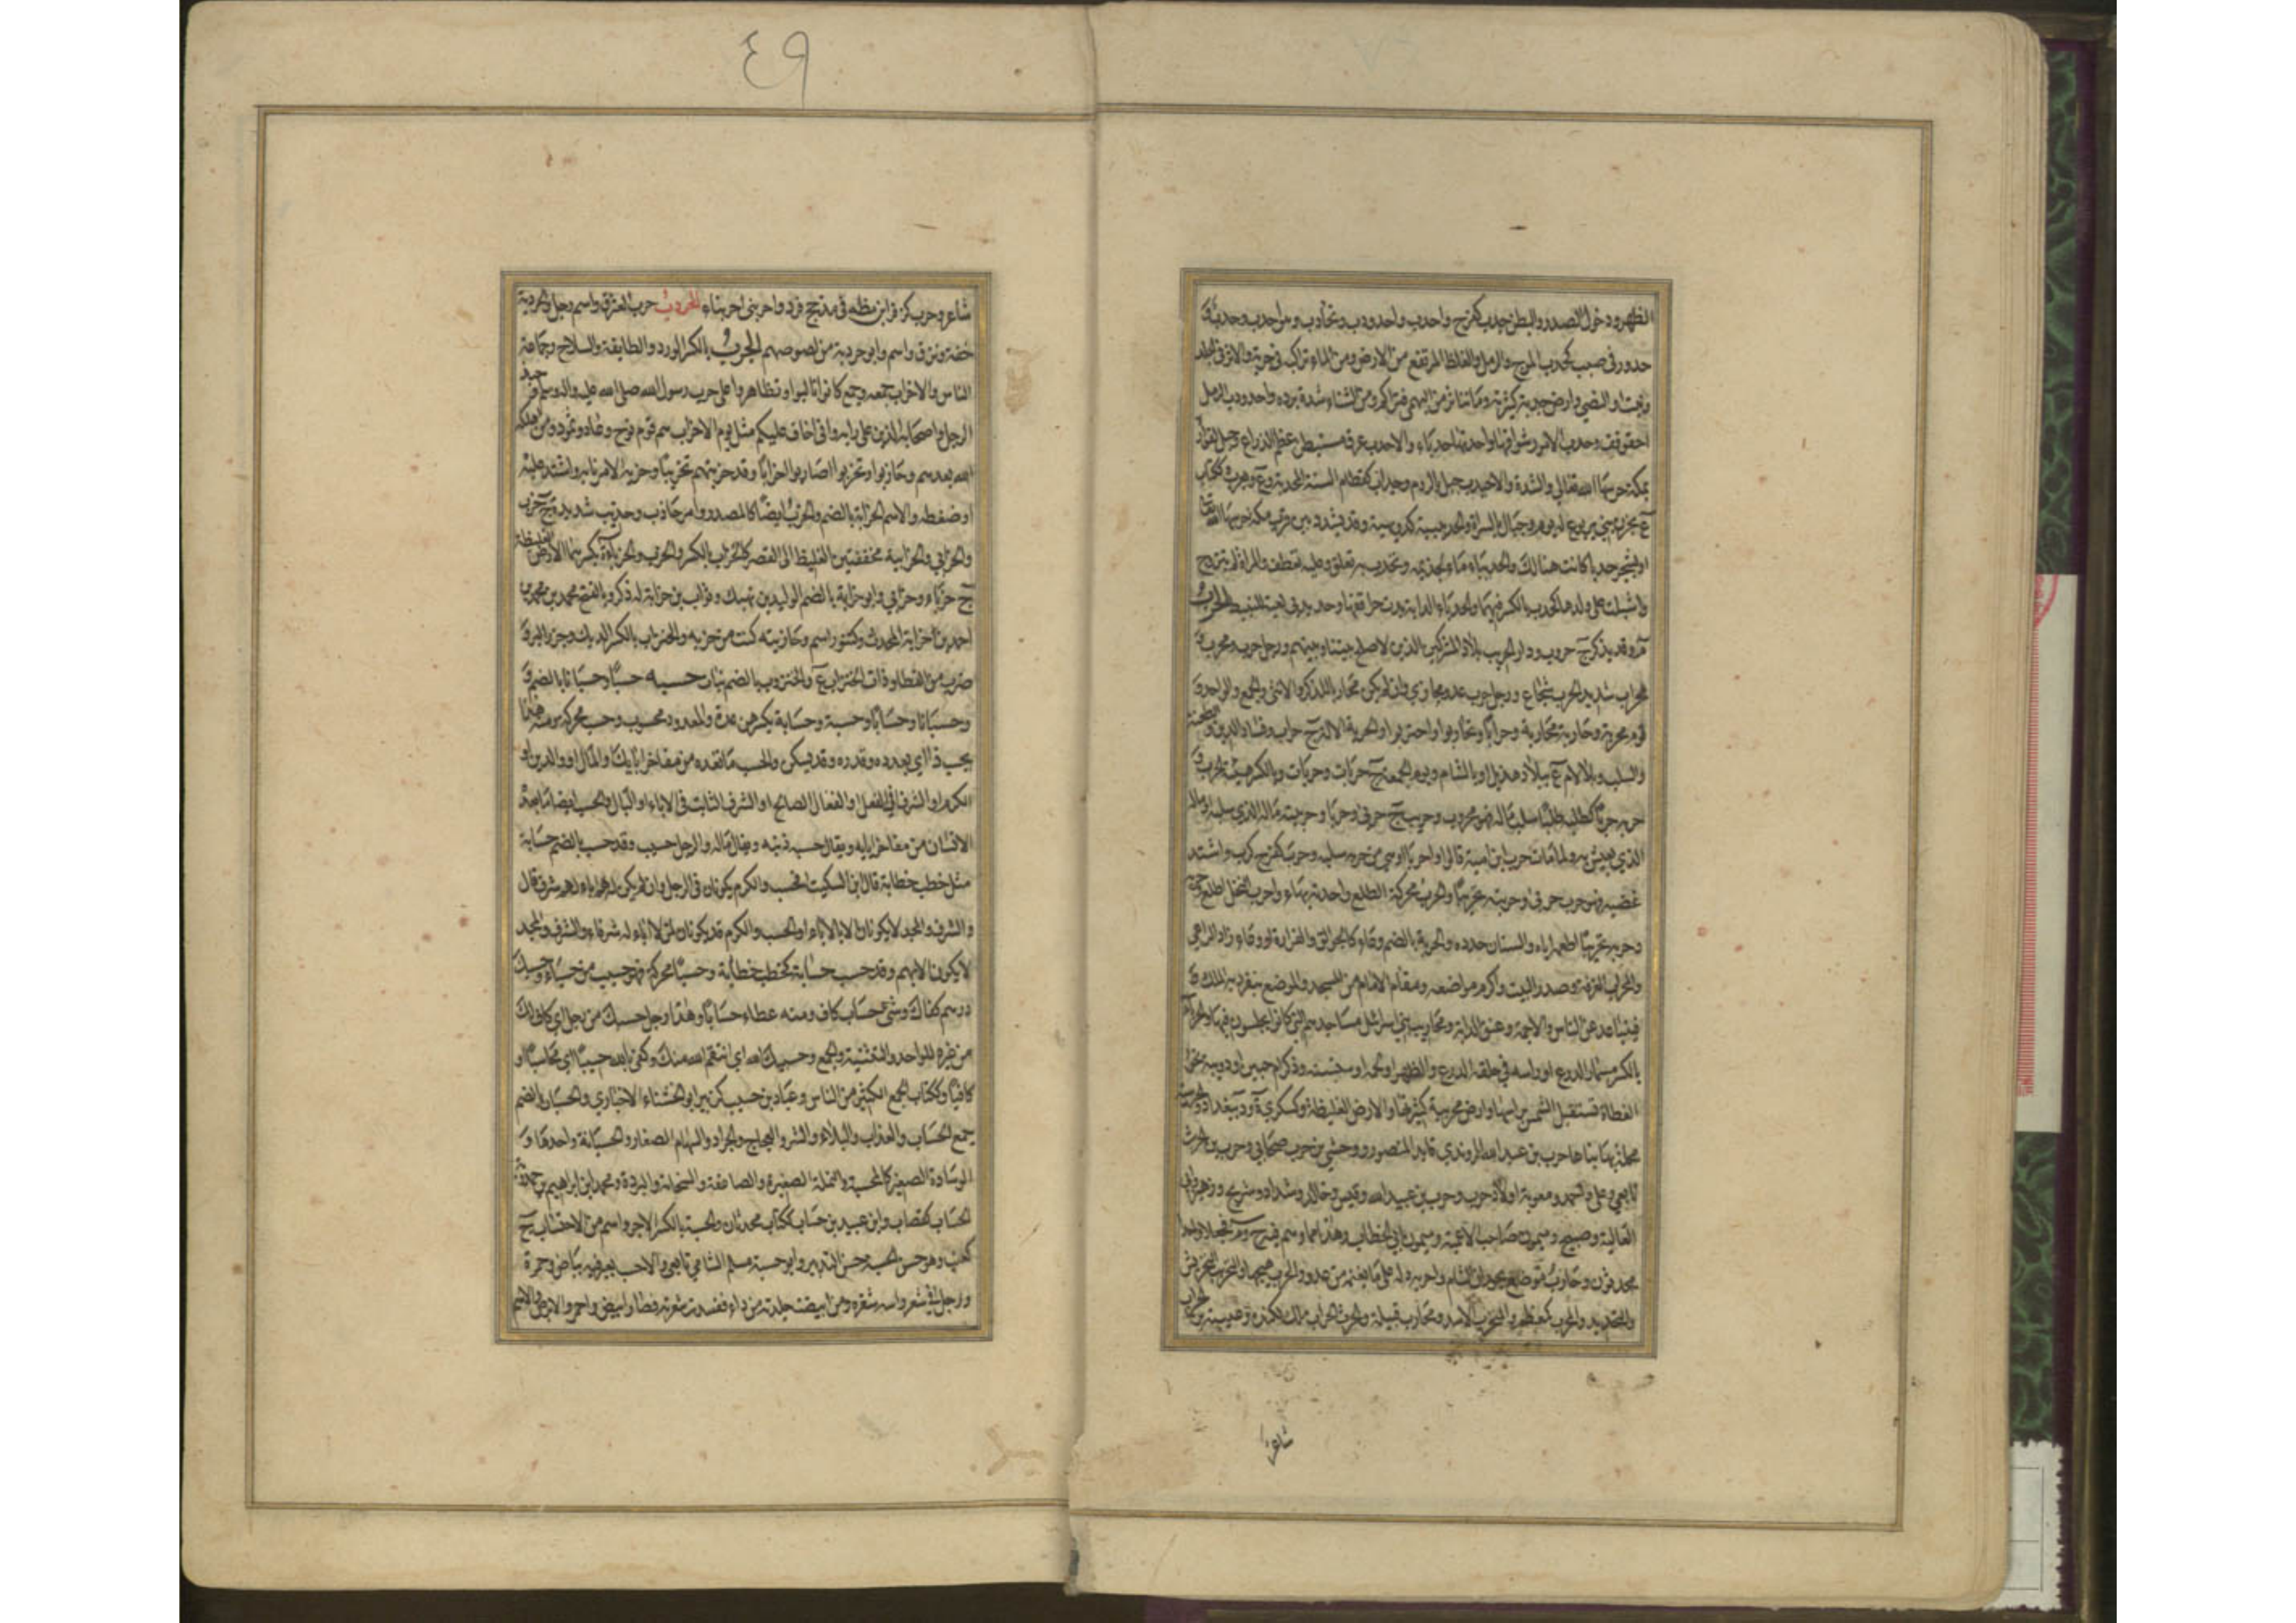 الظهر ودخول الصدر والبطن حدب كفرح واحدب واحدودب وتحادب وهو احدب وحدب و
حدور في صبب كحدب الموج والرمل والغلظ المرتفع من الارض ومن الماء تراكبه في جريه والاثر في الجلد
ونبت او النصي وارض حدبة كثيرته وما تناثر من البهمى فتراكم ومن الشتاء شدة برده واحدودب الرمل
احقوقف وحدب الامور شواقها واحدتها حدباء والاحدب عرق مستبطن عظم الذراع وجبل لفزارة
بمكة حرسها الله تعالى والشدة والاحيدب جبل بالروم وحداب كقطام السنة المجدبة وع ويعرب وككتاب
ع بحزن بني يربوع له يوم وجبال بالسراة والحديبية كدويهية وقد تشدد بير قرب مكة حرسها الله تعالى
او لشجرة حدباء كانت هنالك والحديباء ماء لجذيمة وتحدب به تعلق وعليه تعطف والمراة لم تتزوج
واشبلت على ولدها كحدب بالكسر فيهما والحدباء الدابة بدت حراقفها وحديدبى لعبة للنبيط الحرب
م وقد يذكر ج حروب ودار الحرب بلاد المشركين الذين لا صلح بيننا وبينهم ورجل حرب ومحرب و
محراب شديد الحرب شجاع ورجل حرب عدو محارب وان لم يكن محاربا للذكر والانثى والجمع والواحد و
قوم محربة وحاربه محاربة وحرابا وتحاربوا واحتربوا والحربة الالة ج حراب وفساد الدين والطعنة
والسلب وبلا لام ع ببلاد هذيل او بالشام ويوم الجمعة ج حربات وحربات وبالكسر هيئة الحرب و
حربه حربا كطلبه طلبا سلب ماله فهو محروب وحريب ج حربى وحرباء وحريبته ماله الذي سلبه او ماله
الذي يعيش به ولما مات حرب ابن امية قالوا واحربا او هي من حربه سلبه وحرب كفرح كلب واشتد
غضبه فهو حرب من حربى وحربته تحريبا والحرب محركة الطلع واحدته بهاء واحرب النخل اطلع
وحربه تحريبا اطعمه اياه والسنان حدده والحربة بالضم وعاء كالجوالق والغرارة او وعاء زاد الراعي
والمحراب الغرفة وصدر البيت واكرم مواضعه ومقام الامام من المسجد والموضع ينفرد به الملك
فيتباعد عن الناس والاجمة وعنق الدابة ومحاريب بني اسرائيل مساجدهم التي كانوا يجلسون فيها والحرباء
بالكسر مسمار الدرع او راسه في حلقة الدرع والظهر او لحمه او سنسنه وذكر ام حبين او دويبة نحو
العظاة تستقبل الشمس براسها وارض محربة كثيرتها والارض الغليظة وكسكرى د ببغداد والحربية
محلة بها بناها حرب بن عبد الله الراوندي قايد المنصور ووحشي بن حرب صحابي وحرب بن الحرث
تابعي وعلي واحمد ومعوية اولاد حرب وحرب بن عبيد الله وقيس وخالد وشداد وشريح وزهير
العالية وصبيح وميمون صاحب الاغمية وميمون ابي الخطاب وهذا مما وهم فيه خ وم فجعلاه واحدا
محدثون وحارب موضع بحوران الشام واحربه دله على ما يغنمه من عدو والحرب هيجها والتحريب التحريش
والتحديد والمحرب كمعظم والمتحرب الاسد ومحارب قبيلة والحرث الحراب ملك لكندة وعتيبة بن الحراب
شاعر
٤٩
شاعر وحرب كزفر ابن مظة في مذحج فرد واحربنى احربناء الحردب حب العشرق واسم رجل والحردبة
خفة ونزق واسم وابو حردبة من لصوصهم الحزب بالكسر الورد والطايفة والسلاح وجماعة
الناس والاحزاب جمعه وجمع كانوا تالبوا وتظاهروا على حرب رسول الله صلى الله عليه واله وسلم وجند
الرجل واصحابه الذين على رايه واني اخاف عليكم مثل يوم الاحزاب هم قوم نوح وعاد وثمود ومن اهلكه
الله بعدهم وحازبوا وتحزبوا صاروا احزابا وقد حزبتهم تحزيبا وحزبه الامر نابه واشتد عليه
او ضغطه والاسم الحزابة بالضم والحزب ايضا كالمصدر وامر حازب وحزيب شديد ج حزب
والحزابي والحزابية مخففتين الغليظ الى القصر كالحنزاب بالكسر والحزب والحزباءة بكسرهما الارض الغليظة
ج حزباء وحزابي وابو حزابة بالضم الوليد بن نهيك وثواب بن حزابة له ذكر وبالفتح محمد بن محمد بن
احمد بن حزابة المحدث وكتنور اسم وحازبته كنت من حزبه والحنزاب بالكسر الديك وجزر البر و
ضرب من القطا وذات الحنزاب ع والحنزوب بالضم نبات حسبه حسبا وحسبانا بالضم و
وحسبانا وحسابا وحسبة وحسابة بكسرهن عدة والمعدود محسوب وحسب محركة ومنه هذا
بحسب ذا اي بعدده وقدره وقد يسكن والحسب ما تعده من مفاخر ابايك والمال او الدين او
الكرم او الشرف في الفعل او الفعال الصالح او الشرف الثابت في الاباء او البال والحسب ايضا ما يعده
الانسان من مفاخر ابايه ويقال حسبه دينه ويقال ماله والرجل حسيب وقد حسب بالضم حسابة
مثل خطب خطابة قال ابن السكيت الحسب والكرم يكونان في الرجل وان لم يكن له اباء لهم شرف قال
والشرف والمجد لا يكونان الا بالاباء او الحسب والكرم قد يكونان لمن لا اباء له شرفاء والشرف والمجد
لا يكونان الا بهم وقد حسب حسابة كخطب خطابة وحسبا محركة فهو حسيب من حسباء وحسبك
درهم كفاك وشيء حساب كاف ومنه عطاء حسابا وهذا رجل حسبك من رجل اي كاف لك
من غيره للواحد والتثنية والجمع وحسيبك الله اي انتقم الله منك وكفى بالله حسيبا اي محاسبا او
كافيا وككتاب الجمع الكثير من الناس وعباد بن حسيب كزبير ابو الخشناء الاخباري والحسبان بالضم
جمع الحساب والعذاب والبلاء والشر والعجاج والجراد والسهام الصغار والحسبانة واحدها و
الوسادة الصغيرة كالمحسبة والنملة الصغيرة والصاعقة والسحابة والبردة ومحمد ابن ابراهيم بن حمدويه
الحساب كقصاب وابن عبيد بن حساب ككتاب محدثان والحسبة بالكسر الاجر واسم من الاحتساب ج
كعنب وهو حسن الحسبة حسن التدبير وابو حسبة مسلم الشامي تابعي والاحسب بعير فيه بياض وحمرة
ورجل في شعر راسه شقرة ومن ابيضت جلدته من داء ففسدت شعرته فصار ابيض واحمر والابرص والاسم